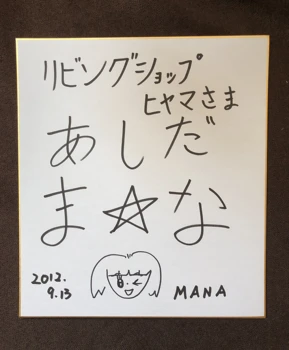 リビングショップ
ヒヤマさま
あしだ
ま☆な
2012.
9.13
MANA